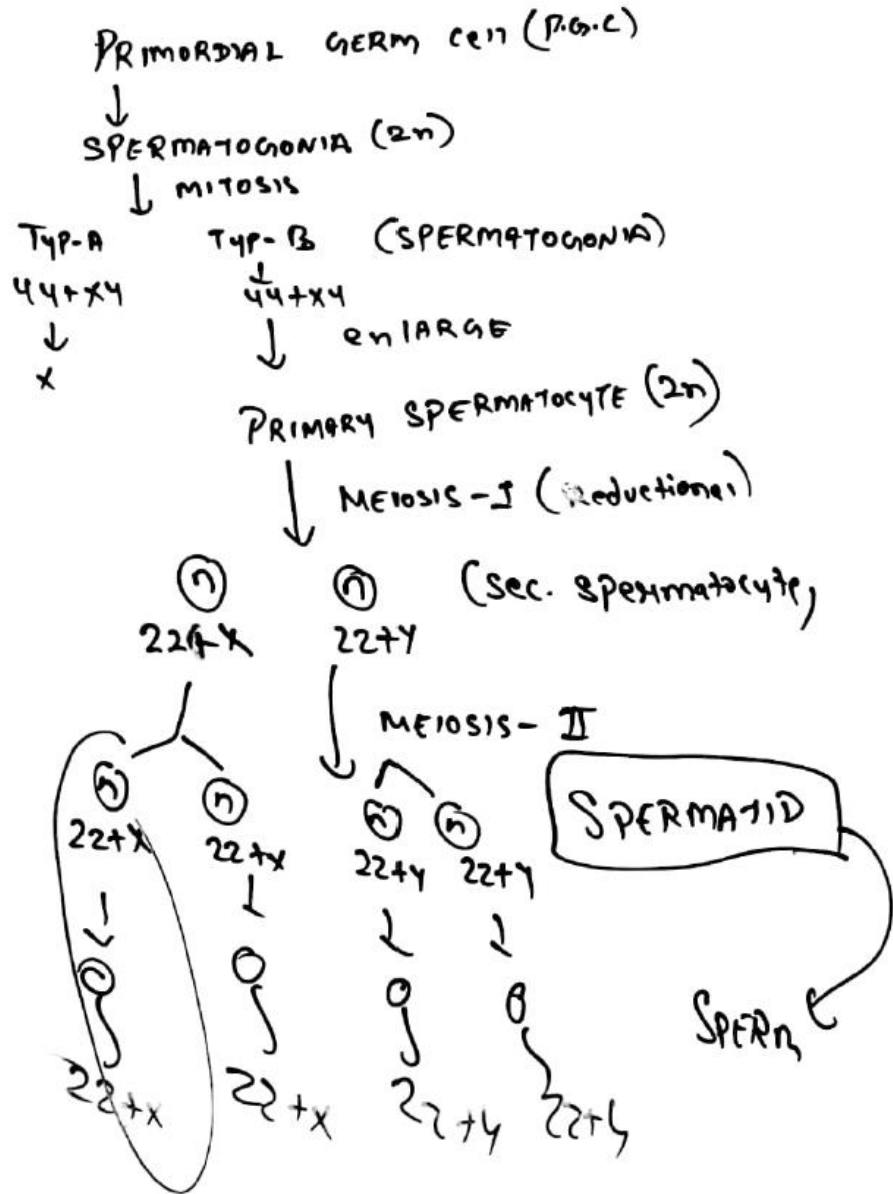 PRIMORDIAL GERM cell (P.G.C)
↓
SPERMATOGONIA (2n)
↓ MITOSIS
Typ-A Typ-B (SPERMATOGONIA)
44+XY 44+XY
↓ ↓ enlARGE
X
PRIMARY SPERMATOCYTE (2n)
↓ MEIOSIS-I (Reductional)
n n (Sec. Spermatocyte)
22+X 22+Y
MEIOSIS-II
n n n n SPERMATID
22+X 22+X 22+Y 22+Y
SPERM
22+X 22+X 22+Y 22+Y